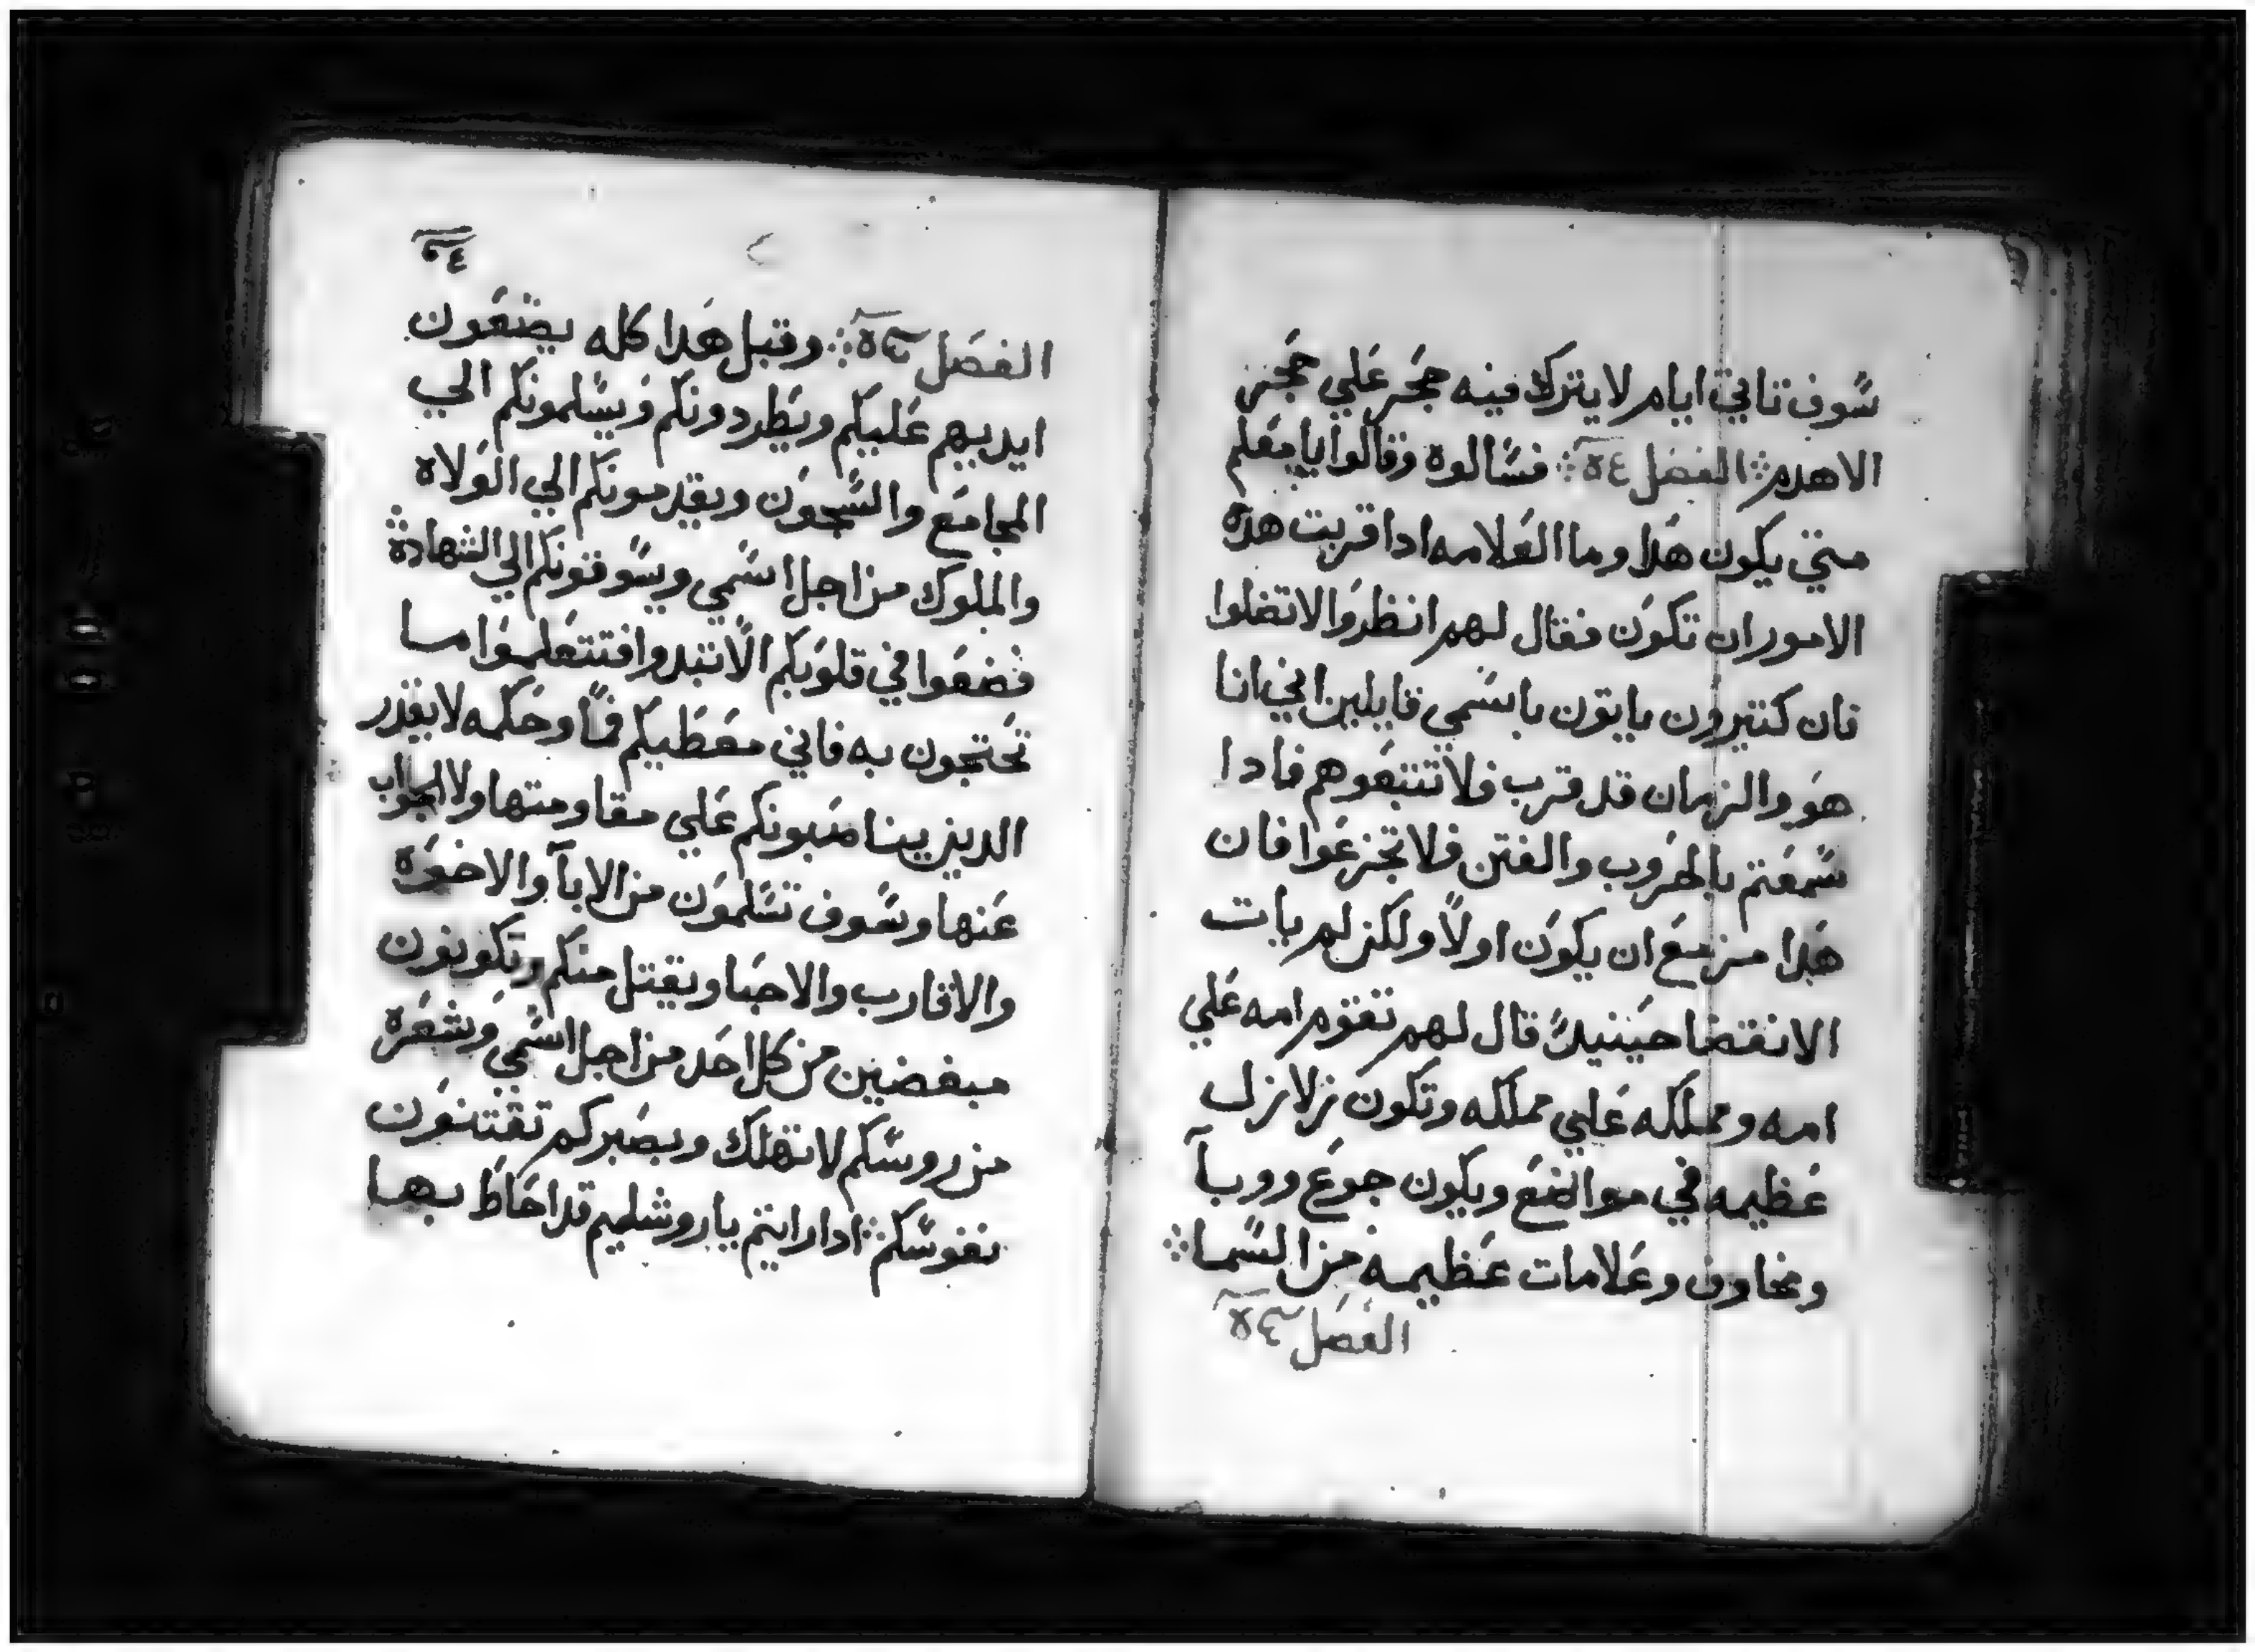 سوف تاتي ايام لا يترك فيه حجر علي حجر
الاهدم ۞ الفصل ٥٤ ۞ فسالوه وقالوا يا معلم
متي يكون هدا وما العلامه ادا قربت هده
الامور ان تكون فقال لهم انظروا الاتضلوا
فان كتيرون ياتون باسمي قايلين اني انا
هو والزمان قد قرب فلا تتبعوهم فادا
سمعتم بالحروب والفتن فلا تجزعوا فان
هدا مزمع ان يكون اولاً ولكن لم يات
الانقضا حينيدً قال لهم تقوم امه علي
امه ومملكه علي مملكه وتكون زلازل
عظيمه في مواضع ويكون جوع ووبآ
ومخاوف وعلامات عظيمه من السما ۞
الفصل
الفصل ۞ وقبل هدا كله يضعون
ايديهم عليكم ويطردونكم ويسلمونكم الي
المجامع والسجون ويقدمونكم الي الولاه
والملوك من اجل اسمي ويسوقونكم الي الشهادة ۞
فضعوا في قلوبكم الا تبدوا فتتعلموا ما
تحتجون به فاني معطيكم فماً وحكمه لا يقدر
الدين يناصبونكم علي مقاومتها ولا الجواب
عنها وسوف تسلمون من الابآ والاخوة
والاقارب والاحبا ويقتل منكم وتكونون
مبغضين من كل احد من اجل اسمي وشعرة
من روسكم لا تهلك وبصبركم تقتنون
نفوسكم ۞ ادا رايتم ياروشليم قد احاط بها